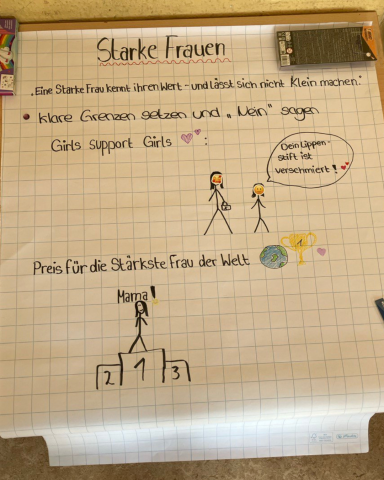 Starke Frauen
„Eine Starke Frau kennt ihren Wert - und lässt sich nicht klein machen."
• klare Grenzen setzen und „Nein" sagen
Girls support Girls :
Dein Lippen-
stift ist
verschmiert!
Preis für die Stärkste Frau der Welt
1
Mama!
2 1 3